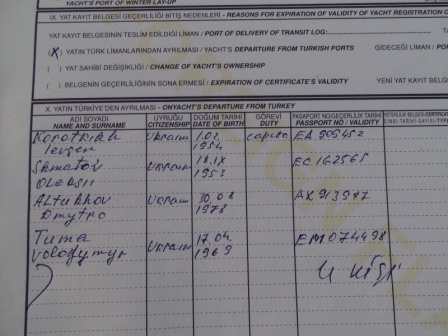 YACHT'S PORT OF WINTER LAY-UP
IX. YAT KAYIT BELGESİ GEÇERLİLİĞİ BİTİŞ NEDENLERİ - REASONS FOR EXPIRATION OF VALIDITY OF YACHT REGISTRATION
YAT KAYIT BELGESİNİN TESLİM EDİLDİĞİ LİMAN / PORT OF DELIVERY OF TRANSIT LOG:
(X) YATIN TÜRK LİMANLARINDAN AYRILMASI / YACHT'S DEPARTURE FROM TURKISH PORTS GİDECEĞİ LİMAN /
( ) YAT SAHİBİ DEĞİŞİKLİĞİ / CHANGE OF YACHT'S OWNERSHIP
( ) BELGENİN GEÇERLİLİĞİNİN SONA ERMESİ / EXPIRATION OF CERTIFICATE'S VALIDITY YENİ YAT KAYIT
X. YATIN TÜRKİYE'DEN AYRILMASI - ONYACHT'S DEPARTURE FROM TURKEY
ADI SOYADI UYRUĞU DOĞUM TARİHİ GÖREVİ PASAPORT NO/GEÇERLİLİK TARİHİ
NAME AND SURNAME CITIZENSHIP DATE OF BIRTH DUTY PASSPORT NO / VALIDITY
Ukrain 1.02 EA 909452
1954
Ukrain 18.IX EC 162565
1953
Altukhov Ukrain 30.08 AX 913977
Dmytro 1978
Tuma Ukrain 17.04 EM074498
Volodymyr 1969
4 kişi